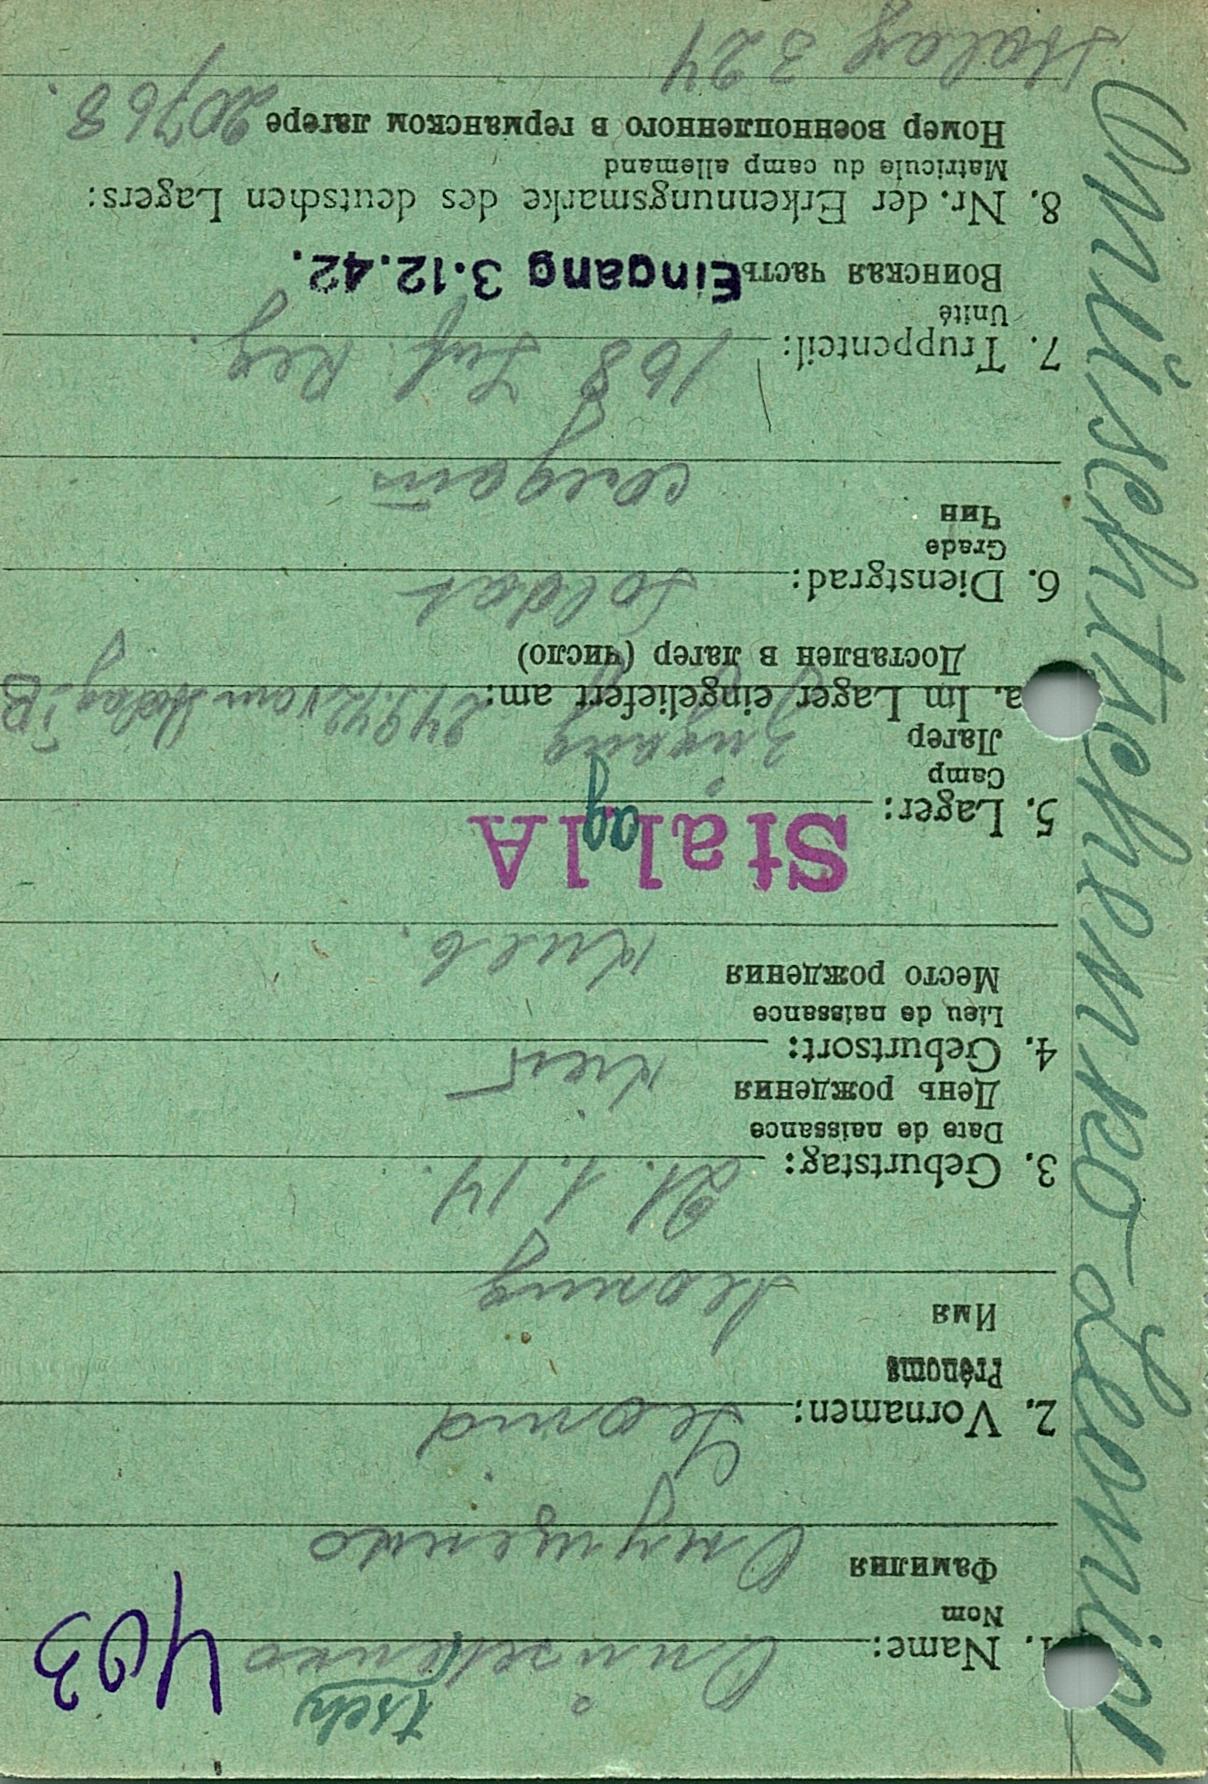 Onüschtschenko Leonid
403
tsch
1. Name: Onüschenko
Nom
Фамилия Онущенко
2. Vornamen: Leonid
Prénoms
Имя Леонид
3. Geburtstag: 21. 1. 14.
Date de naissance
День рождения
4. Geburtsort: Kiew
Lieu de naissance
Место рождения Киев.
5. Lager: Stalag IA
Camp
Лагерь
a. Im Lager eingeliefert am: 24.9.42 vom Stalag IB
Доставлен в лагер (число)
6. Dienstgrad: Soldat
Grade
Чин солдат
7. Truppenteil: 168 Inf. Reg.
Unité
Воинская часть Eingang 3.12.42.
8. Nr. der Erkennungsmarke des deutschen Lagers:
Matricule du camp allemand
Номер военнопленного в германском лагере 20768.
Stalag 324